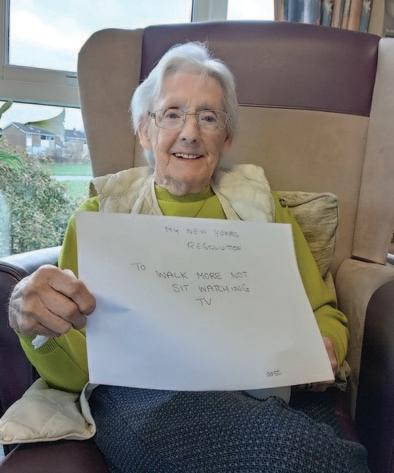 MY NEW YEARS
RESOLUTION
TO WALK MORE NOT
SIT WATCHING
TV